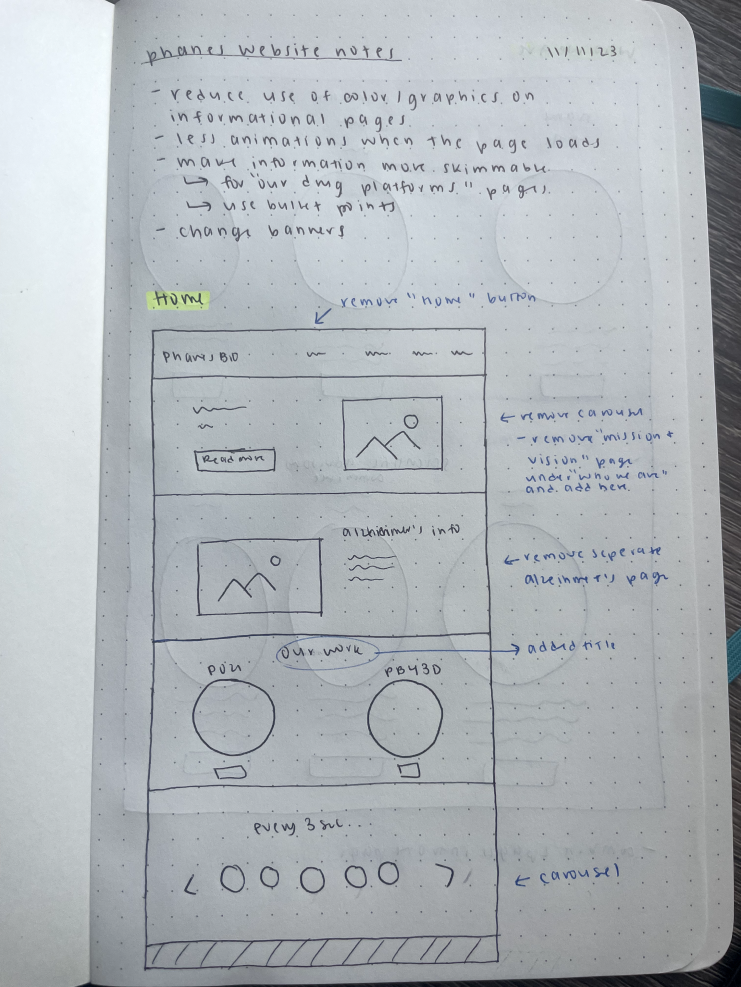 phanes website notes
11/11/23
- reduce use of color/graphics on
informational pages
- less animations when the page loads
- make information more skimmable
↳ for "our drug platforms" pages
↳ use bullet points
- change banners
Home
remove "home" button
Phanes Bio
← remove carousel
- remove "mission +
vision" page
under "who we are"
and add here.
Read more
alzheimer's info
← remove seperate
alzeihmer's page
our work
→ added title
PB43D
every 3 sec...
< >
← carousel